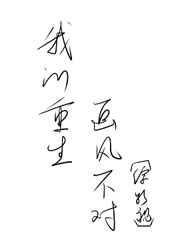 我的重生
画风不对